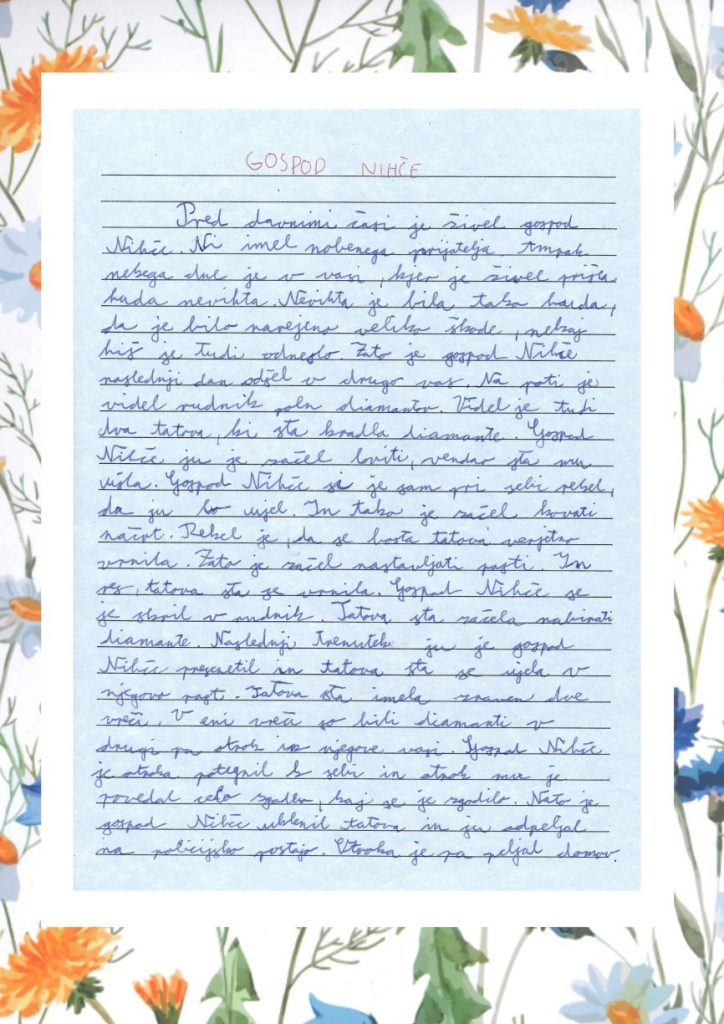 GOSPOD NIHČE
Pred davnimi časi je živel gospod
Nihče. Ni imel nobenega prijatelja. Ampak
nekega dne je v vasi, kjer je živel prišla
huda nevihta. Nevihta je bila tako huda,
da je bilo narejeno veliko škode, nekaj
hiš je tudi odneslo. Zato je gospod Nihče
naslednji dan odšel v drugo vas. Na poti je
videl rudnik poln diamantov. Videl je tudi
dva tatova, ki sta kradla diamante. Gospod
Nihče ju je začel loviti, vendar sta mu
ušla. Gospod Nihče si je sam pri sebi rekel,
da ju bo ujel. In tako je začel kovati
načrt. Rekel je, da se bosta tatova verjetno
vrnila. Zato je začel nastavljati pasti. In
res, tatova sta se vrnila. Gospod Nihče se
je skril v rudnik. Tatova sta začela nabirati
diamante. Naslednji trenutek ju je gospod
Nihče presenetil in tatova sta se ujela v
njegovo past. Tatova sta imela zraven dve
vreči. V eni vreči so bili diamanti v
drugi pa otrok iz njegove vasi. Gospod Nihče
je otroka potegnil k sebi in otrok mu je
povedal celo zgodbo, kaj se je zgodilo. Nato je
gospod Nihče uklenil tatova in ju odpeljal
na policijsko postajo. Otroka je pa peljal domov.